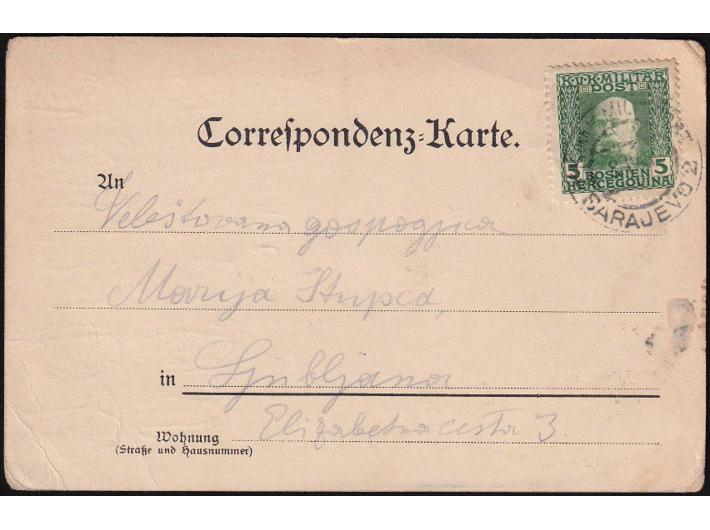 K.U.K. MILITÄR
POST
5 BOSNIEN 5
HERCEGOVINA
SARAJEVO 2
Correspondenz-Karte.
An
Veleštovana gospogjica
Marija Stupca,
in Ljubljana
Elizabetna cesta 3.
Wohnung
(Straße und Hausnummer)